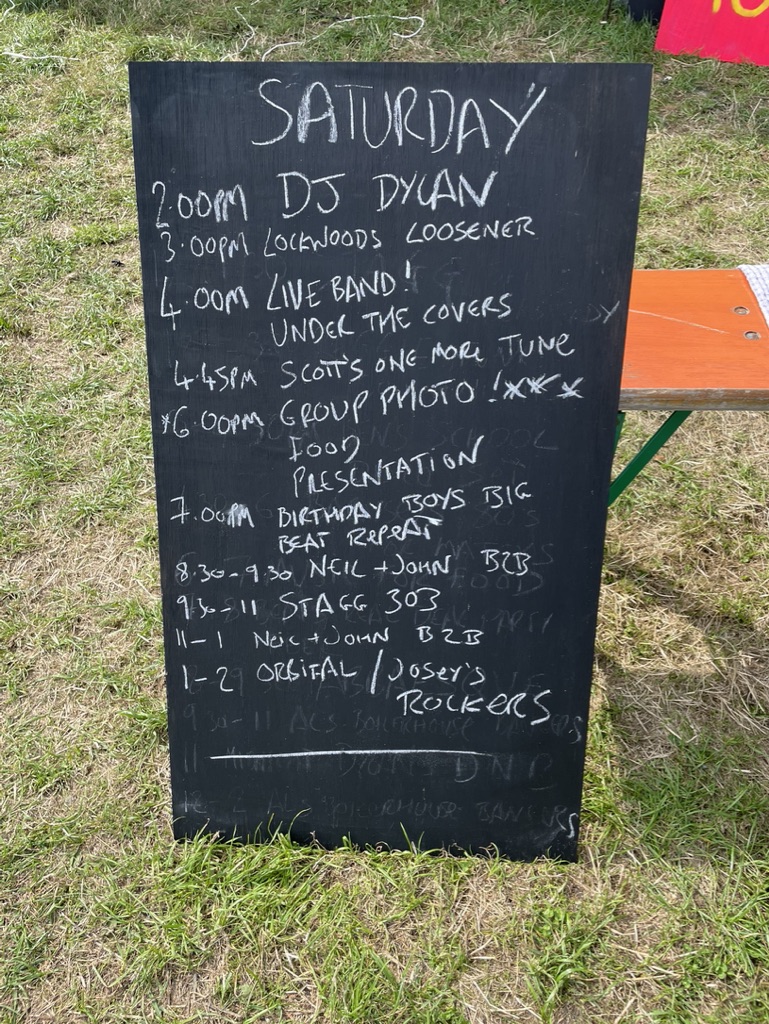 SATURDAY
2.00PM DJ DYLAN
3.00PM LOCKWOODS LOOSENER
4.00M LIVE BAND!
UNDER THE COVERS
4.45PM SCOTT'S ONE MORE TUNE
*6.00PM GROUP PHOTO !xxx
FOOD
PRESENTATION
7.00PM BIRTHDAY BOYS BIG
BEAT REPEAT
8.30-9.30 NEIL + JOHN B2B
9.30-11 STAGG 303
11-1 NEIL + JOHN B2B
1-2 ORBITAL / JOSEY'S
ROCKERS